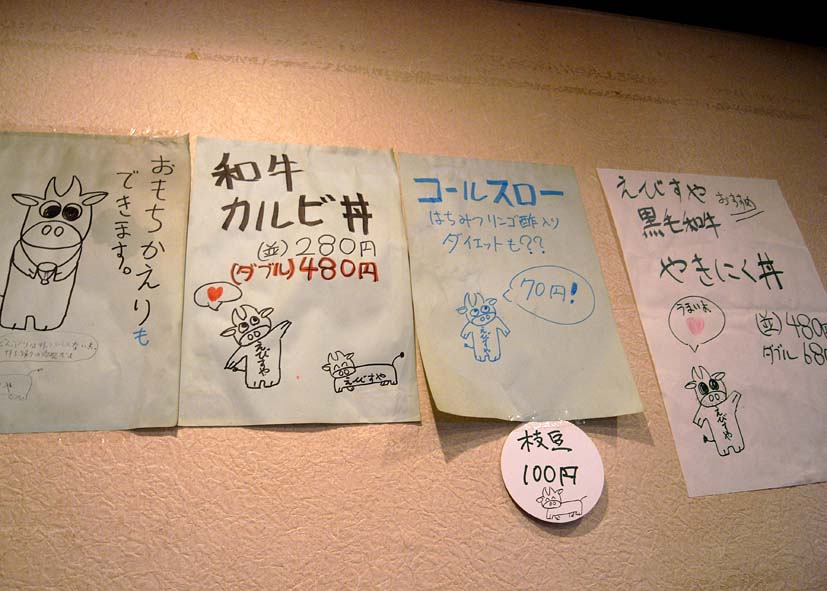 おもちかえりも
できます。
和牛
カルビ丼
(並)280円
(ダブル)480円
えびすや
えびすや
コールスロー
はちみつリンゴ酢入り
ダイエットも??
70円!
えびすや
枝豆
100円
えびすや
おすすめ
黒毛和牛
やきにく丼
うまいよ
(並)480円
ダブル680
えびすや